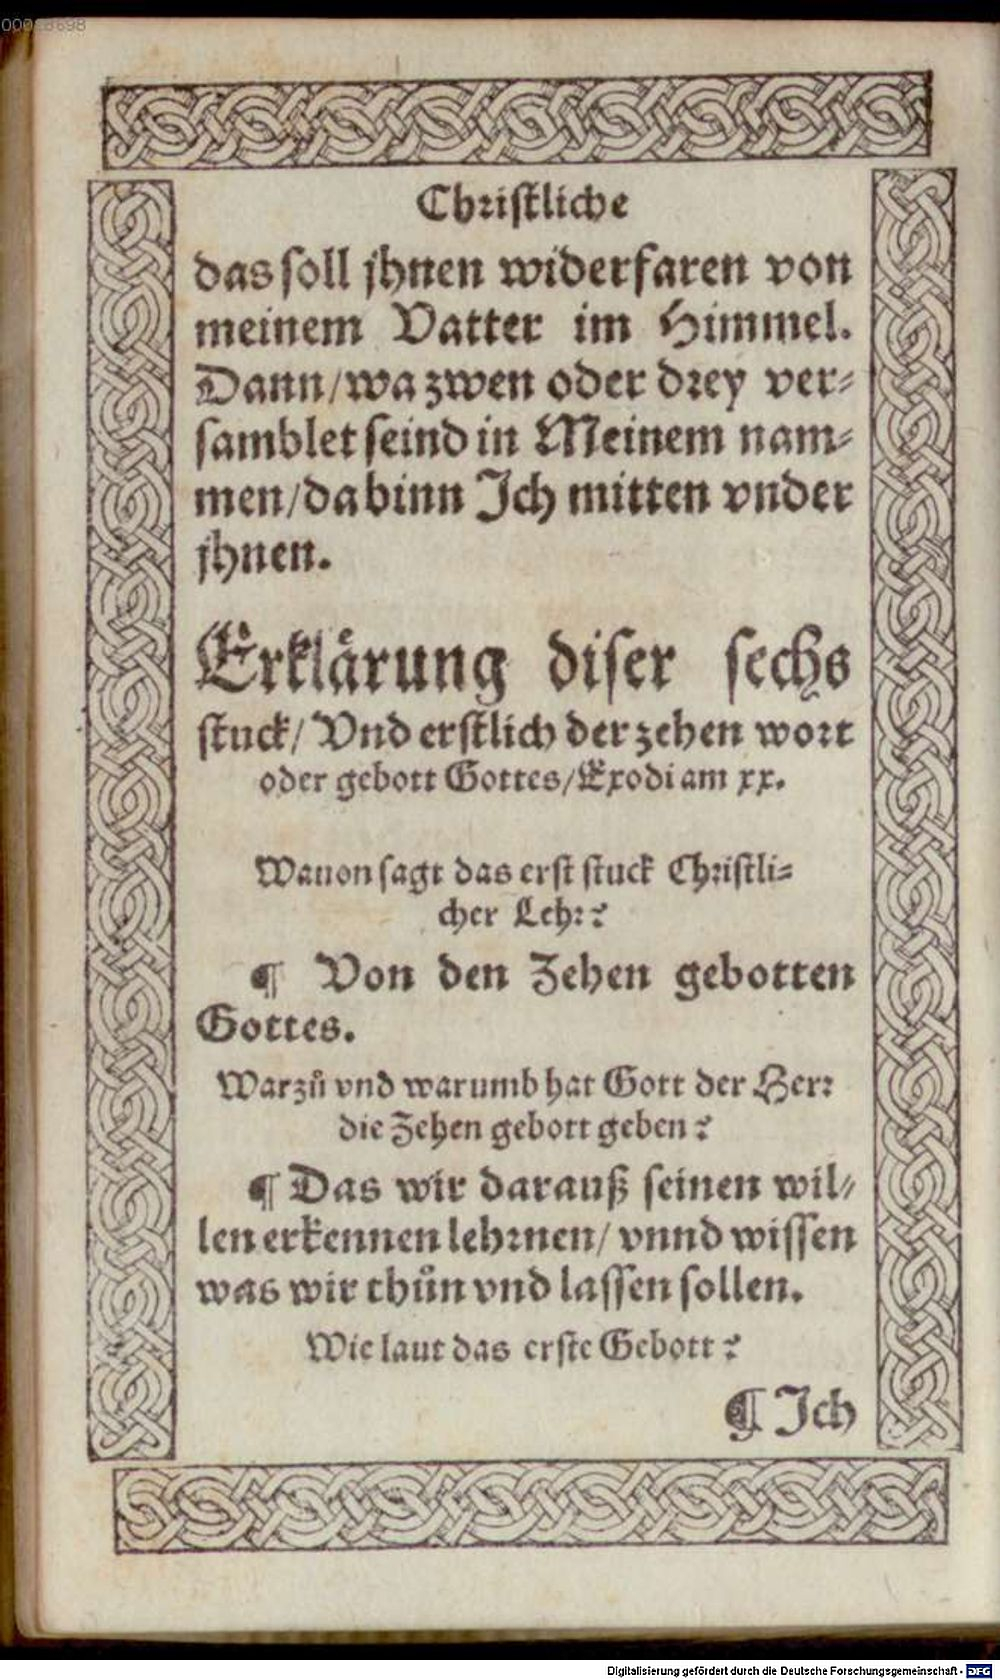 Christliche
das soll jhnen widerfaren von
meinem Vatter im Himmel.
Dann/ wa zwen oder drey ver⸗
samblet seind in Meinem nam⸗
men/ da binn Ich mitten vnder
jhnen.
Erklårung diser sechs
stuck/ Vnd erstlich der zehen wort
oder gebott Gottes/ Exodi am xx.
Wauon sagt das erst stuck Christli⸗
cher Lehr?
¶ Von den Zehen gebotten
Gottes.
Warzů vnd warumb hat Gott der Herr
die Zehen gebott geben?
¶ Das wir darauß seinen wil/
len erkennen lehrnen/ vnnd wissen
was wir thůn vnd lassen sollen.
Wie laut das erste Gebott?
¶ Ich
Digitalisierung gefördert durch die Deutsche Forschungsgemeinschaft - DFG